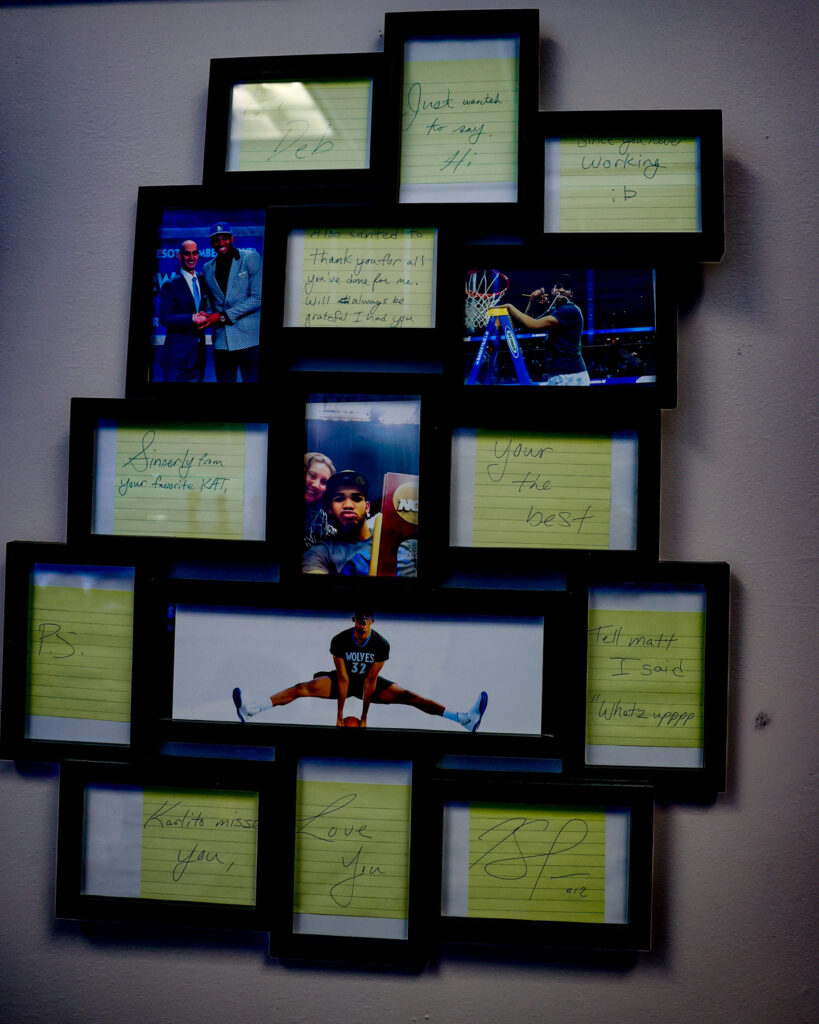 Deb
Just wanted
to say,
Hi
Since you never
working
;b
Also wanted to
thank you for all
you've done for me.
Will always be
grateful I had you
Sincerly from
your favorite KAT,
Your
the
best
P.S.
WOLVES
32
Tell matt
I said
"Whatz upppp
Karlito misse
you,
Love
You
#12